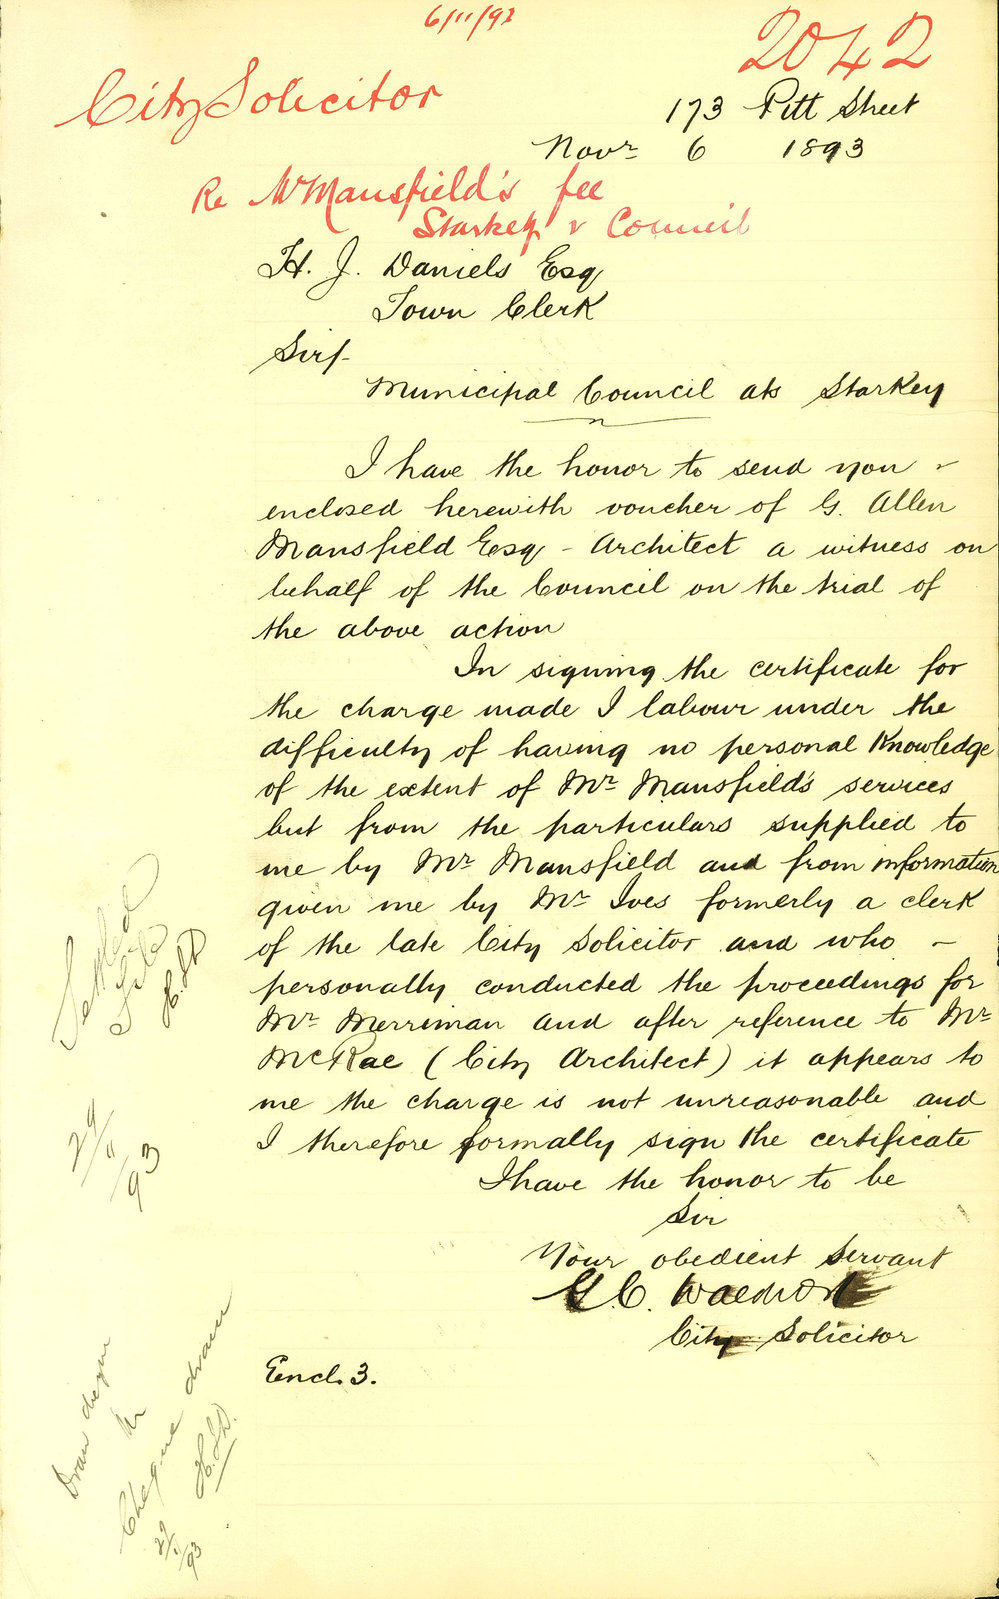 6/11/92
2042
City Solicitor
173 Pitt Street
Novr 6 1893
Re Mr Mansfield's fee
Starkey v Council
H. J. Daniels Esq
Town Clerk
Sir/-
Municipal Council ats Starkey
I have the honor to send you -
enclosed herewith voucher of G. Allen
Mansfield Esq - Architect a witness on
behalf of the Council on the trial of
the above action
In signing the certificate for
the charge made I labour under the
difficulty of having no personal Knowledge
of the extent of Mr Mansfield's services
but from the particulars supplied to
me by Mr Mansfield and from information
given me by Mr Ives formerly a clerk
of the late City Solicitor and who -
personally conducted the proceedings for
Mr Merriman and after reference to Mr
McRae (City Architect) it appears to
me the charge is not unreasonable and
I therefore formally sign the certificate
I have the honor to be
Sir
Your obedient servant
G. C. Waldron
City Solicitor
Encl. 3.
Settled
H.J.D
29/11/93
Draw
Cheque drawn
H.J.D.
29/11/93